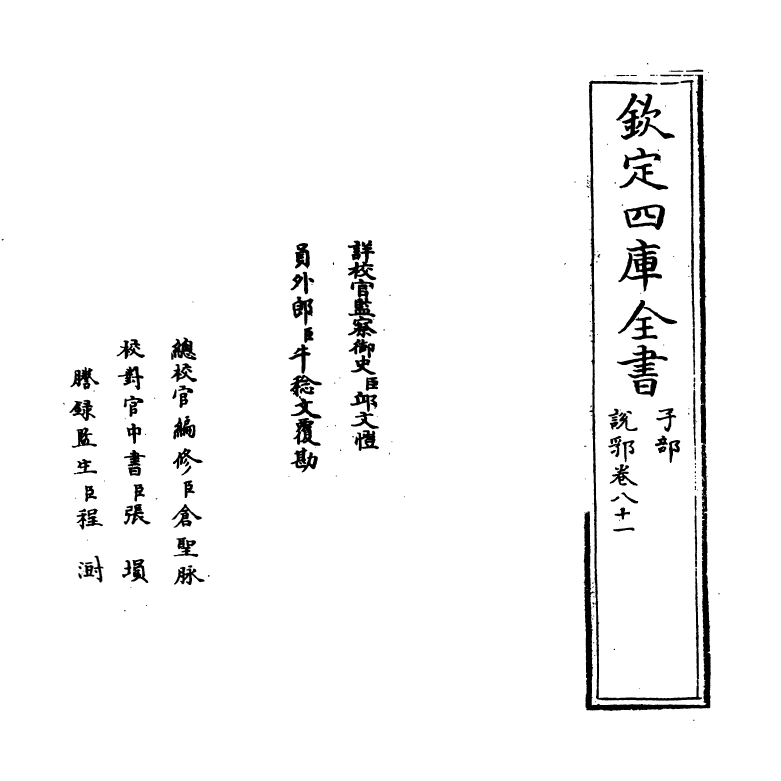 欽定四庫全書
子部
說郛卷八十一
詳校官監察御史臣邱文愷
員外郎臣牛稔文覆勘
總校官編修臣倉聖脉
校對官中書臣張塤
謄録監生臣程澍